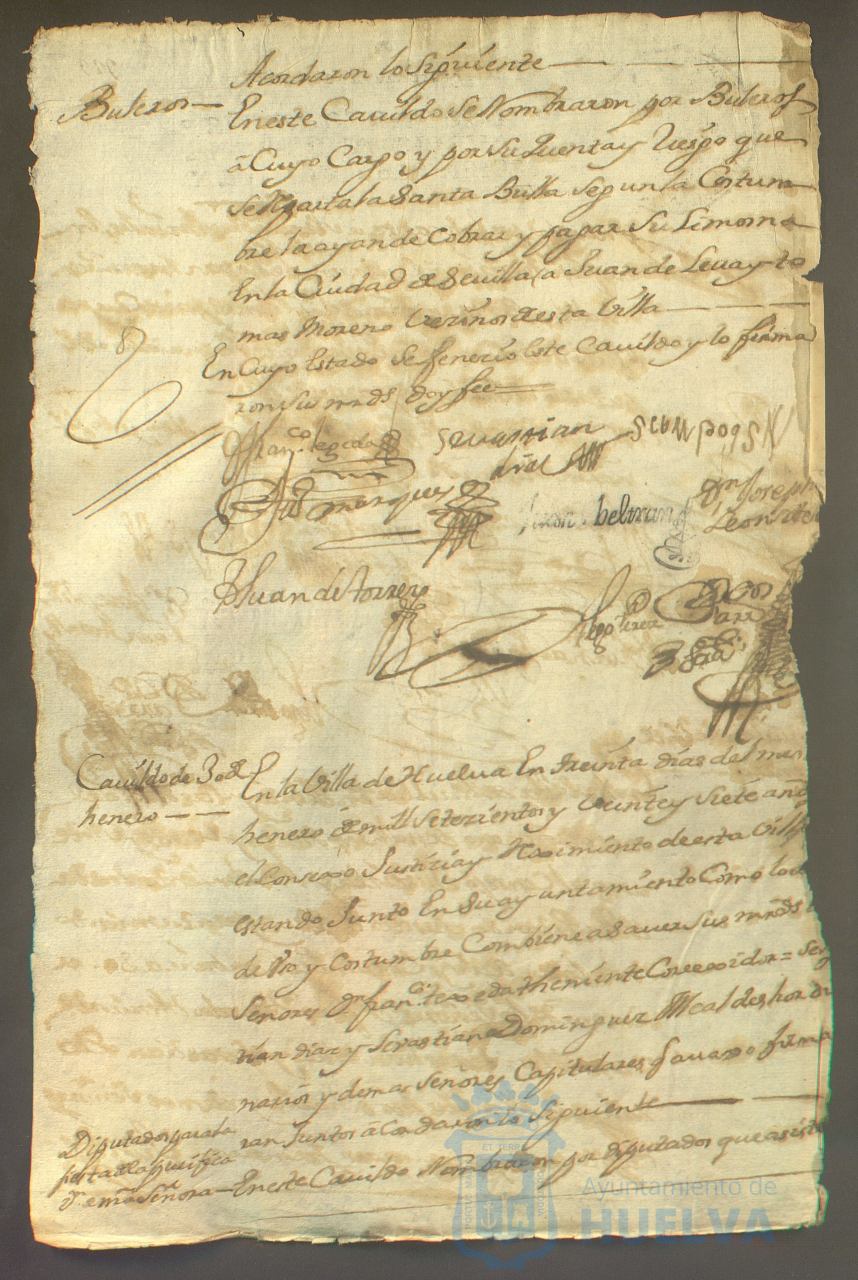 Acordaron lo Siguiente
Buleros
En este Cavildo Se Nombraron por Buleros
a Cuyo Cargo y por Su quenta y Riesgo que
se Reparta la Santa Bulla Segun la Costum
bre la ayan de Cobrar y pagar Su Limosna
En la Ciudad de Sevilla a Juan de Leva y to
mas Moreno Vezinos desta Villa
En Cuyo Estado Se fenezio Este Cavildo y lo firma
ron sus mrds doy fee
Franco
Sevastian
dias
marques
beltran
Dn Joseph
Leon
Juan de torres
Cavildo de 30 de
henero
En la Villa de Huelva En treinta dias del mes
henero de mill Setezientos y veinte y Siete año
el Consexo Justizia y Reximiento de esta Villa
estando Junto En Su ayuntamiento Como lo a
de Uso y Costumbre Combiene a Saver Sus mrds
Señores Dn franco texeda theniente Correxidor =
tian diaz y Sevastian Dominguez Alcaldes hordi
narios y demas Señores Capitulares firma
ran Juntos aCordaron lo Siguiente
Diputados para la
fiesta de la purifica
de nra Señora
En este Cavildo Nombraron por diputados que asista
Ayuntamiento de
HUELVA